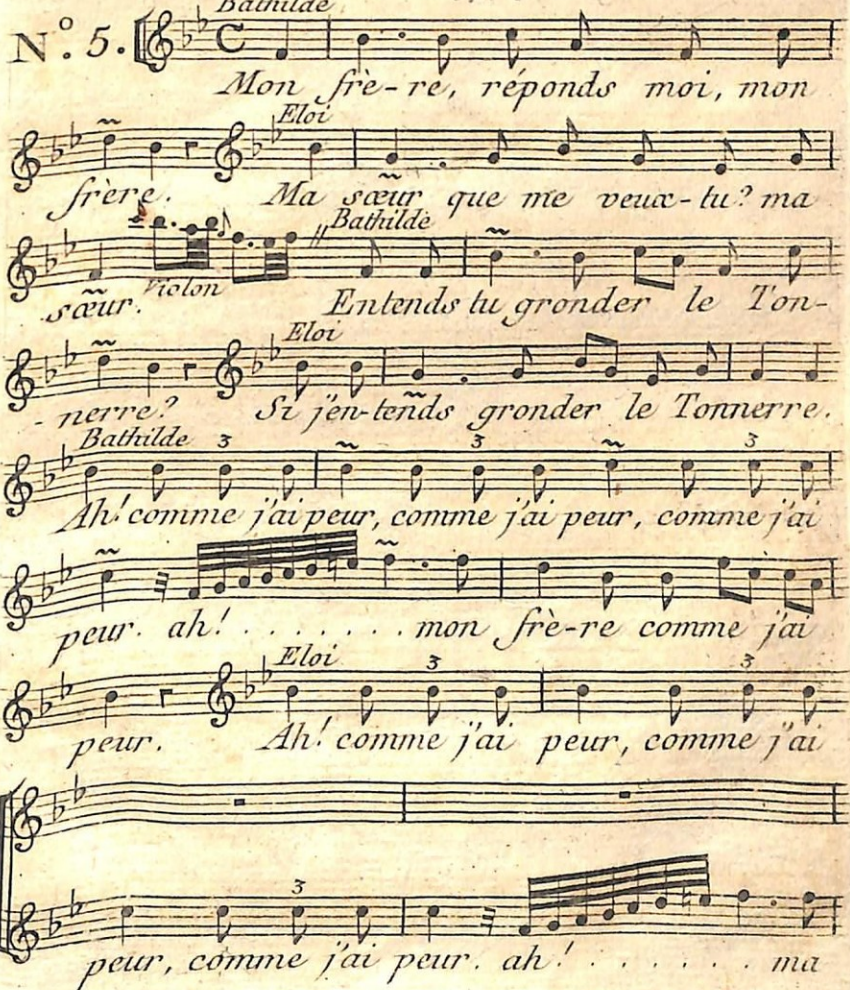 Bathilde
N.º 5. C
Mon frè-re, réponds moi, mon
Eloi
frère. Ma sœur que me veux-tu? ma
Bathilde
Violon
sœur. Entends tu gronder le Ton-
Eloi
-nerre? Si j'en-tends gronder le Tonnerre.
Bathilde 3
Ah! comme j'ai peur, comme j'ai peur, comme j'ai
3 3
peur. ah! . . . . . . . mon frè-re comme j'ai
Eloi 3 3
peur. Ah! comme j'ai peur, comme j'ai
3
peur, comme j'ai peur. ah! . . . . . . . ma